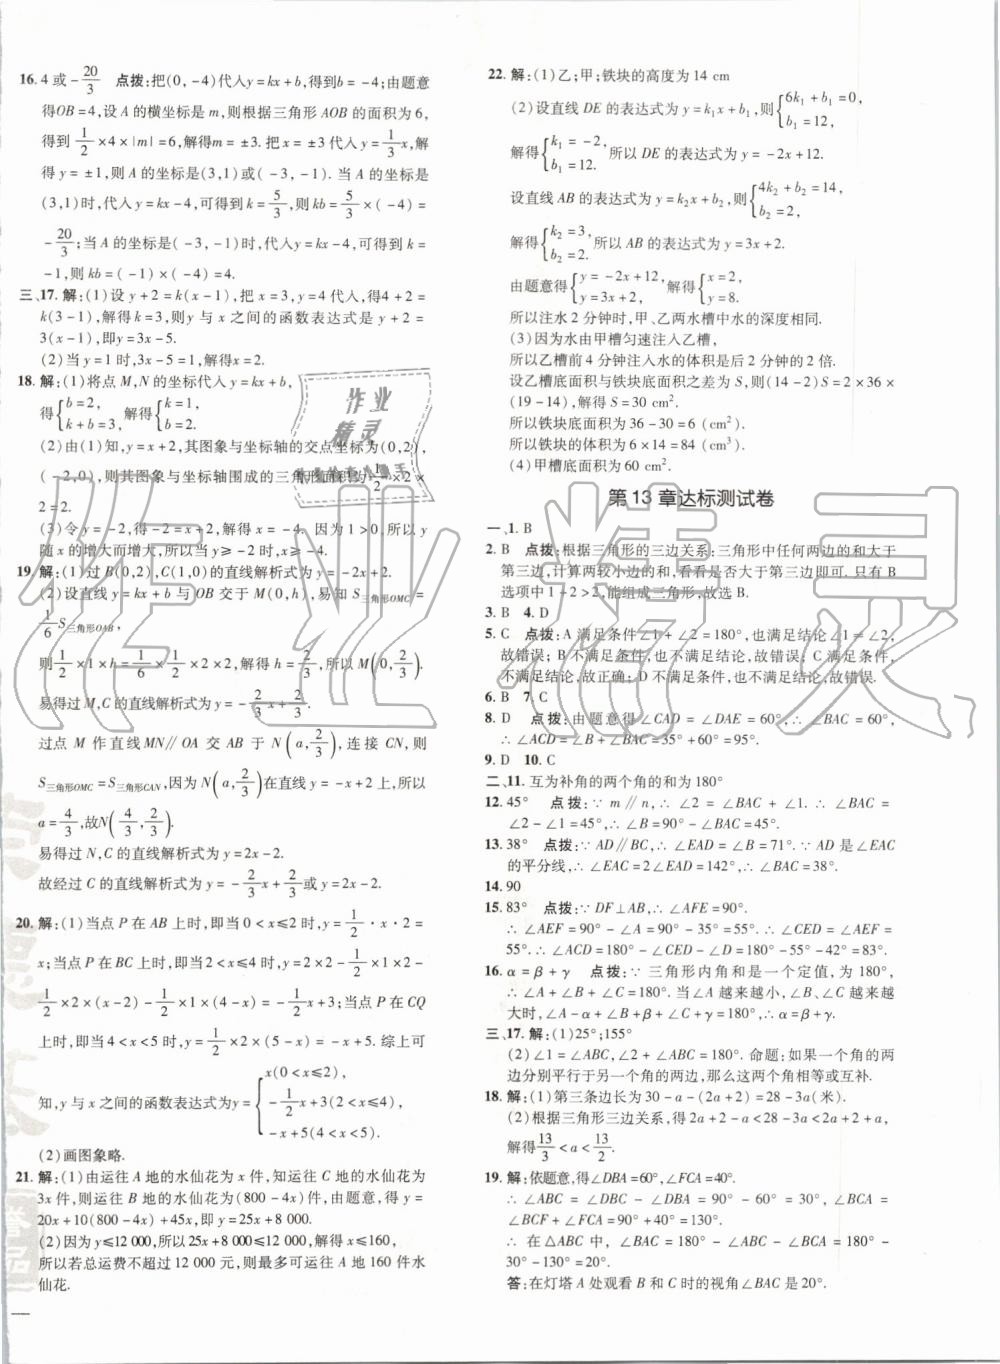 16. 4 或 -20/3 点拨:把(0, -4)代入 y=kx+b, 得到 b=-4;由题意
得 OB=4,设 A 的横坐标是 m,则根据三角形 AOB 的面积为 6,
得到 1/2×4×|m|=6,解得 m=±3.把 x=±3 代入 y=1/3x,解
得 y=±1,则 A 的坐标是(3,1)或(-3,-1).当 A 的坐标是
(3,1)时,代入 y=kx-4,可得到 k=5/3,则 kb=5/3×(-4)=
-20/3;当 A 的坐标是(-3,-1)时,代入 y=kx-4,可得到 k=
-1,则 kb=(-1)×(-4)=4.
三、17. 解:(1)设 y+2=k(x-1),把 x=3,y=4 代入,得 4+2=
k(3-1),解得 k=3,则 y 与 x 之间的函数表达式是 y+2=
3(x-1),即 y=3x-5.
(2)当 y=1 时,3x-5=1,解得 x=2.
18. 解:(1)将点 M,N 的坐标代入 y=kx+b,
得{b=2, k+b=3, 解得{k=1, b=2.
(2)由(1)知,y=x+2,其图象与坐标轴的交点坐标为(0,2),
(-2,0),则其图象与坐标轴围成的三角形面积=1/2×2×
2=2.
(3)令 y=-2,即 -2=x+2,解得 x=-4.因为 k=1>0,所以 y
随 x 的增大而增大,所以当 y≥-2 时,x≥-4.
19. 解:(1)过 B(0,2),C(1,0)的直线解析式为 y=-2x+2.
(2)设直线 y=kx+b 与 OB 交于 M(0,h),易知 S三角形OMC=
1/6 S三角形OAB,
则 1/2×1×h=1/6×1/2×2×2,解得 h=2/3,所以 M(0,2/3).
易得过 M,C 的直线解析式为 y=-2/3x+2/3.
过点 M 作直线 MN∥OA 交 AB 于 N(a,2/3),连接 CN,则
S三角形OMC=S三角形CAN,因为 N(a,2/3)在直线 y=-x+2 上,所以
a=4/3,故 N(4/3,2/3).
易得过 N,C 的直线解析式为 y=2x-2.
故经过 C 的直线解析式为 y=-2/3x+2/3 或 y=2x-2.
20. 解:(1)当点 P 在 AB 上时,即当 0<x≤2 时,y=1/2·x·2=
x;当点 P 在 BC 上时,即当 2<x≤4 时,y=2×2-1/2×1×2-
1/2×2×(x-2)-1/2×1×(4-x)=-1/2x+3;当点 P 在 CQ
上时,即当 4<x<5 时,y=1/2×2×(5-x)=-x+5.综上可
知,y 与 x 之间的函数表达式为 y={x(0<x≤2), -1/2x+3(2<x≤4), -x+5(4<x<5).
(2)画图象略.
21. 解:(1)由运往 A 地的水仙花为 x 件,知运往 C 地的水仙花为
3x 件,则运往 B 地的水仙花为(800-4x)件,由题意,得 y=
20x+10(800-4x)+45x,即 y=25x+8 000.
(2)因为 y≤12 000,所以 25x+8 000≤12 000,解得 x≤160,
所以若总运费不超过 12 000 元,则最多可运往 A 地 160 件水
仙花.
22. 解:(1)乙;甲;铁块的高度为 14 cm
(2)设直线 DE 的表达式为 y=k₁x+b₁,则{6k₁+b₁=0, b₁=12,
解得{k₁=-2, b₁=12. 所以 DE 的表达式为 y=-2x+12.
设直线 AB 的表达式为 y=k₂x+b₂,则{4k₂+b₂=14, b₂=2,
解得{k₂=3, b₂=2. 所以 AB 的表达式为 y=3x+2.
由题意得{y=-2x+12, y=3x+2, 解得{x=2, y=8.
所以注水 2 分钟时,甲、乙两水槽中水的深度相同.
(3)因为水由甲槽匀速注入乙槽,
所以乙槽前 4 分钟注入水的体积是后 2 分钟的 2 倍.
设乙槽底面积与铁块底面积之差为 S,则(14-2)S=2×36×
(19-14),解得 S=30 cm².
所以铁块底面积为 36-30=6(cm²).
所以铁块的体积为 6×14=84(cm³).
(4)甲槽底面积为 60 cm².
第 13 章达标测试卷
一、1. B
2. B 点拨:根据三角形的三边关系:三角形中任何两边的和大于
第三边,计算两较小边的和,看看是否大于第三边即可.只有 B
选项中 1+2>2,能组成三角形,故选 B.
3. B 4. D
5. C 点拨:A 满足条件∠1+∠2=90°,也满足结论∠1=∠2,
故错误;B 不满足条件,也不满足结论,故错误;C 满足条件,
不满足结论,故正确;D 不满足条件,也不满足结论,故错误.
6. B 7. C
8. D 点拨:由题意得∠CAD=∠DAE=60°,∴∠BAC=60°,
∴∠ACD=∠B+∠BAC=35°+60°=95°.
9. D 10. C
二、11. 互为补角的两个角的和为 180°
12. 45° 点拨:∵m∥n,∴∠2=∠BAC+∠1.∴∠BAC=
∠2-∠1=45°,∴∠B=∠BAC=45°.
13. 38° 点拨:∵AD∥BC,∴∠EAD=∠B=71°.∵AD 是∠EAC
的平分线,∴∠EAC=2∠EAD=142°,∴∠BAC=38°.
14. 90
15. 83° 点拨:∵DF⊥AB,∴∠AFE=90°.
∴∠AEF=90°-∠A=90°-35°=55°,∴∠CED=∠AEF=
55°.∴∠ACD=180°-∠CED-∠D=180°-55°-42°=83°.
16. α=β+γ 点拨:∵三角形内角和是一个定值,为 180°,
∴∠A+∠B+∠C=180°.当∠A 越来越小,∠B,∠C 越来越
大时,∠A-α+∠B+β+∠C+γ=180°.∴α=β+γ.
三、17. 解:(1)25°;155°
(2)∠1=∠ABC,∠1+∠2=180°.命题:如果一个角的两
边分别平行于另一个角的两边,那么这两个角相等或互补.
18. 解:(1)第三条边长为 30-a-(2a+2)=28-3a(米).
(2)根据三角形三边关系,得 2a+2-a<28-3a<2a+2+a,
解得 13/3<a<13/2.
19. 解:依题意,得∠DBA=60°,∠FCA=40°.
∴∠ABC=∠DBC-∠DBA=90°-60°=30°,∠BCA=
∠BCF+∠FCA=90°+40°=130°.
∴在△ABC 中,∠BAC=180°-∠ABC-∠BCA=180°-
30°-130°=20°.
答:在灯塔 A 处观看 B 和 C 时的视角∠BAC 是 20°.
作业
精灵
作业精灵